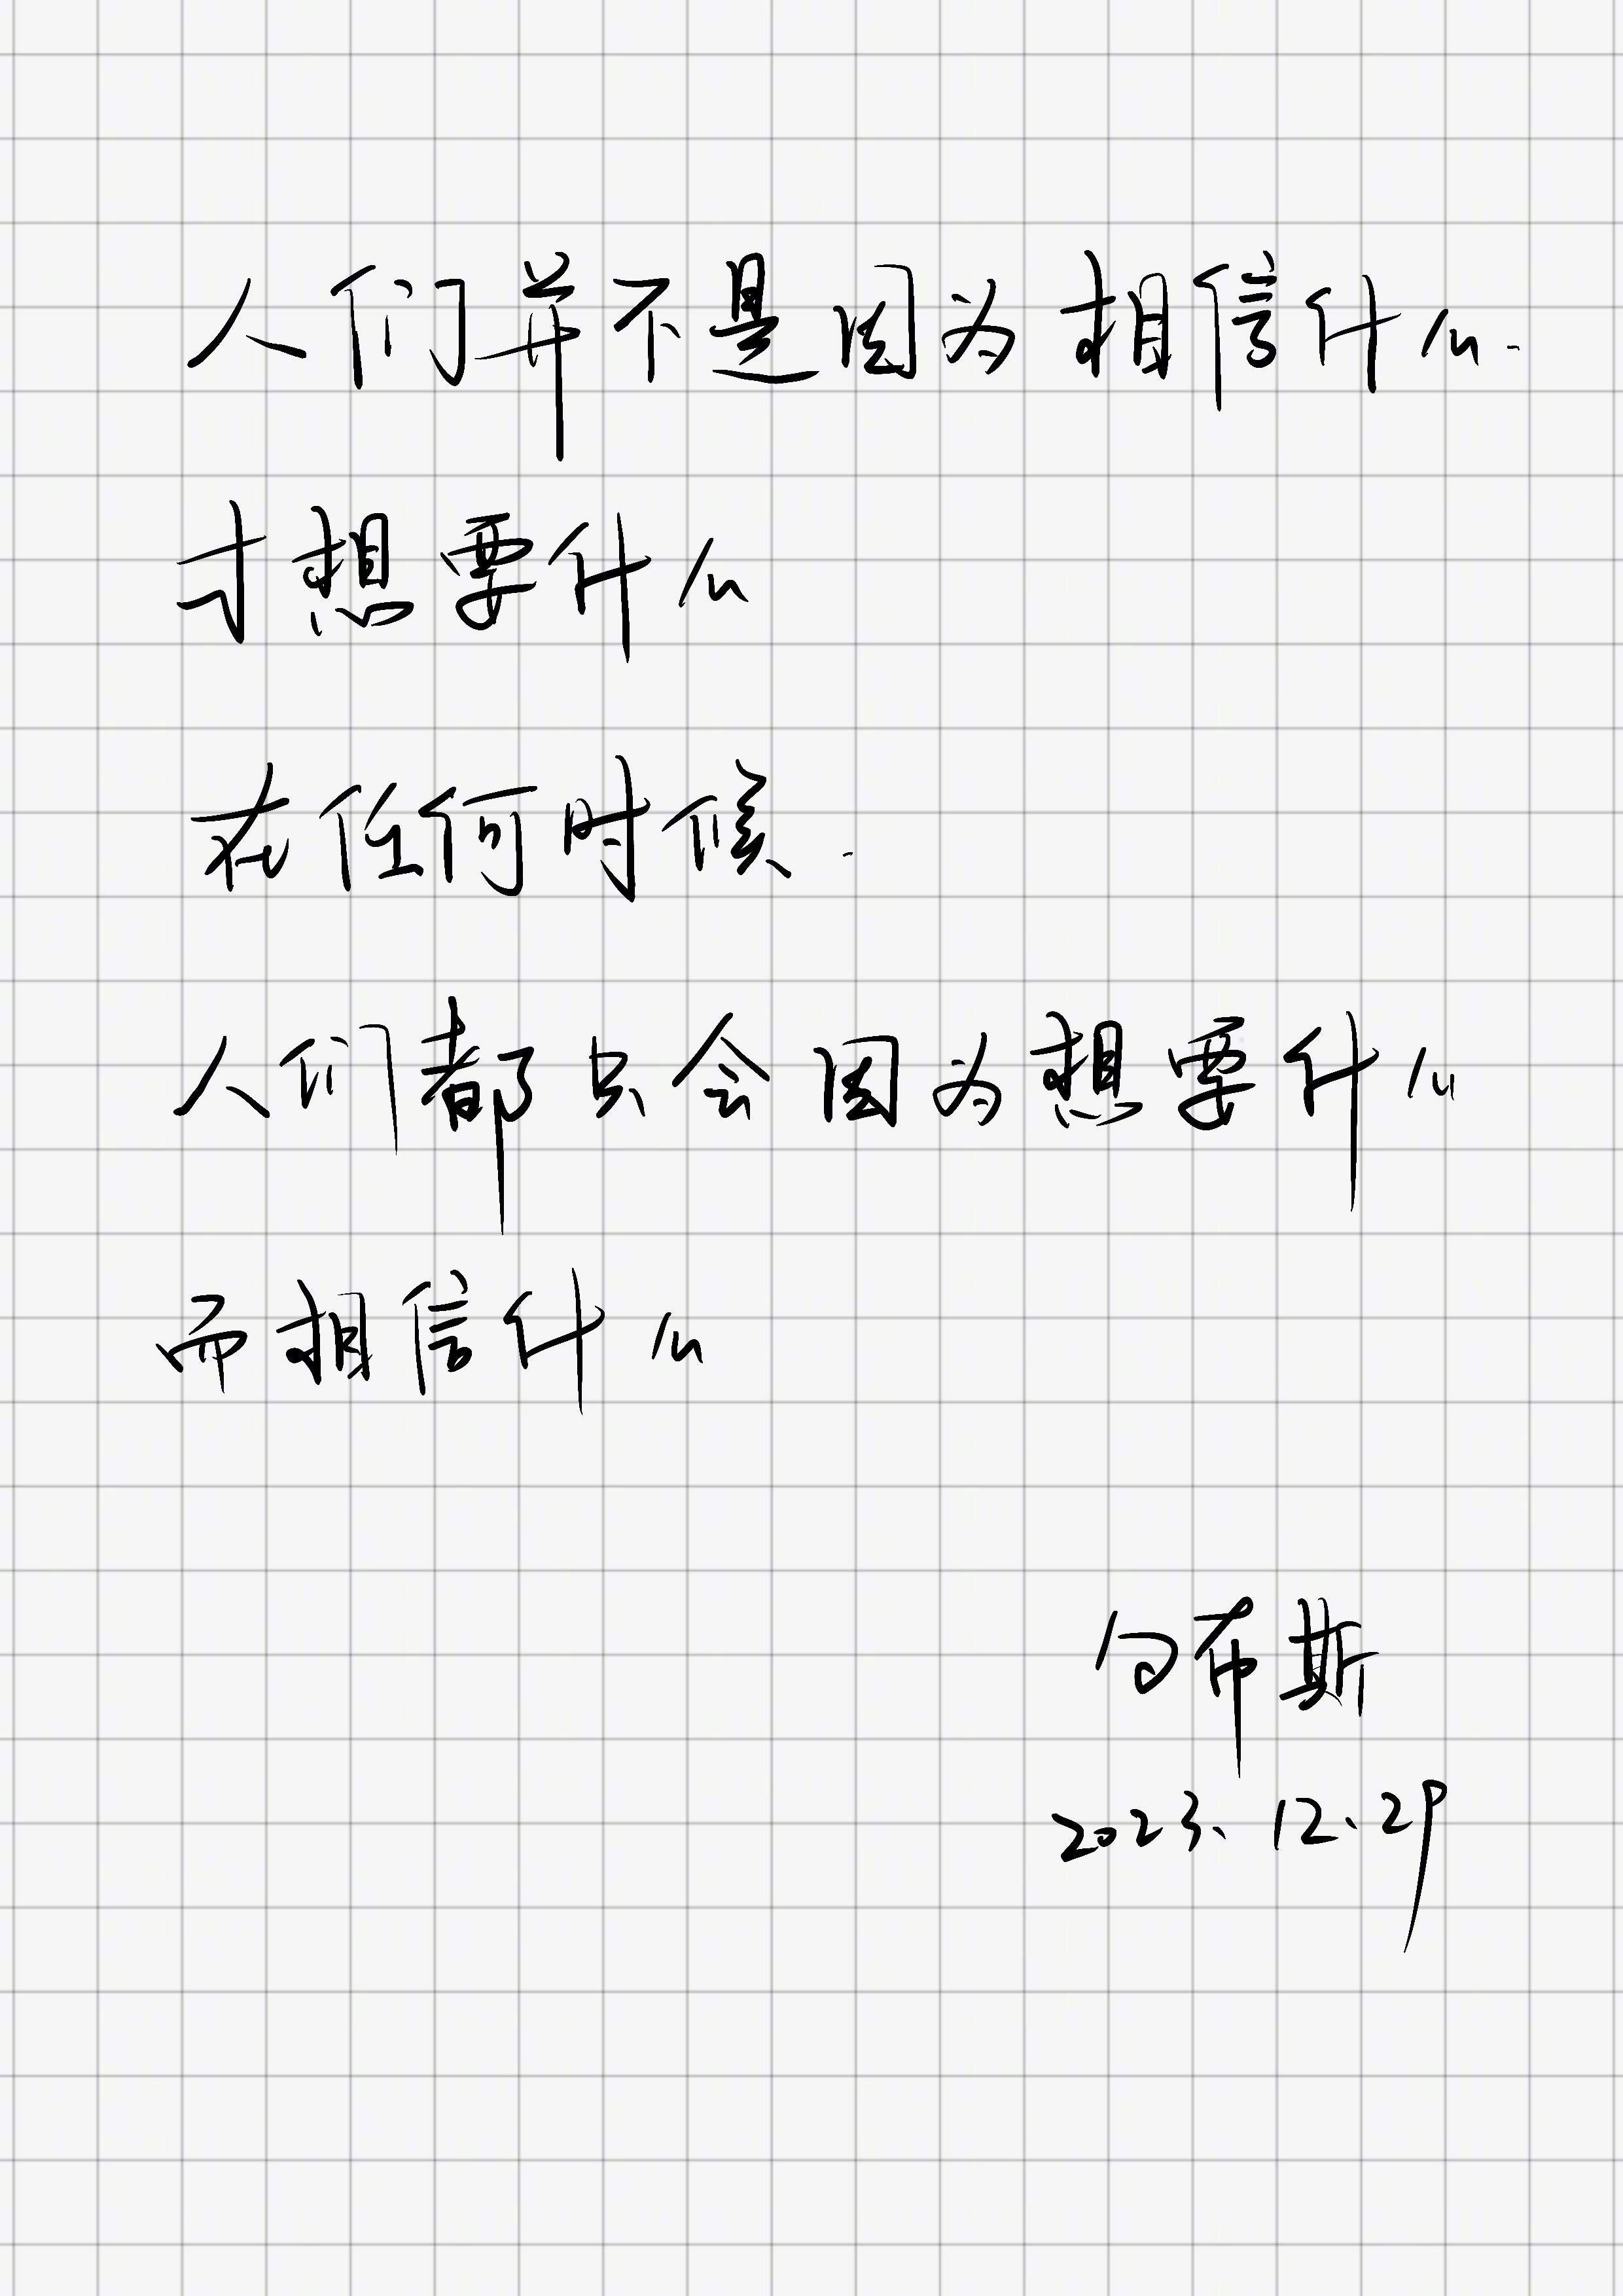 人们并不是因为相信什么.
才想要什么
在任何时候.
人们都只会因为想要什么
而相信什么
白布斯
2023.12.29